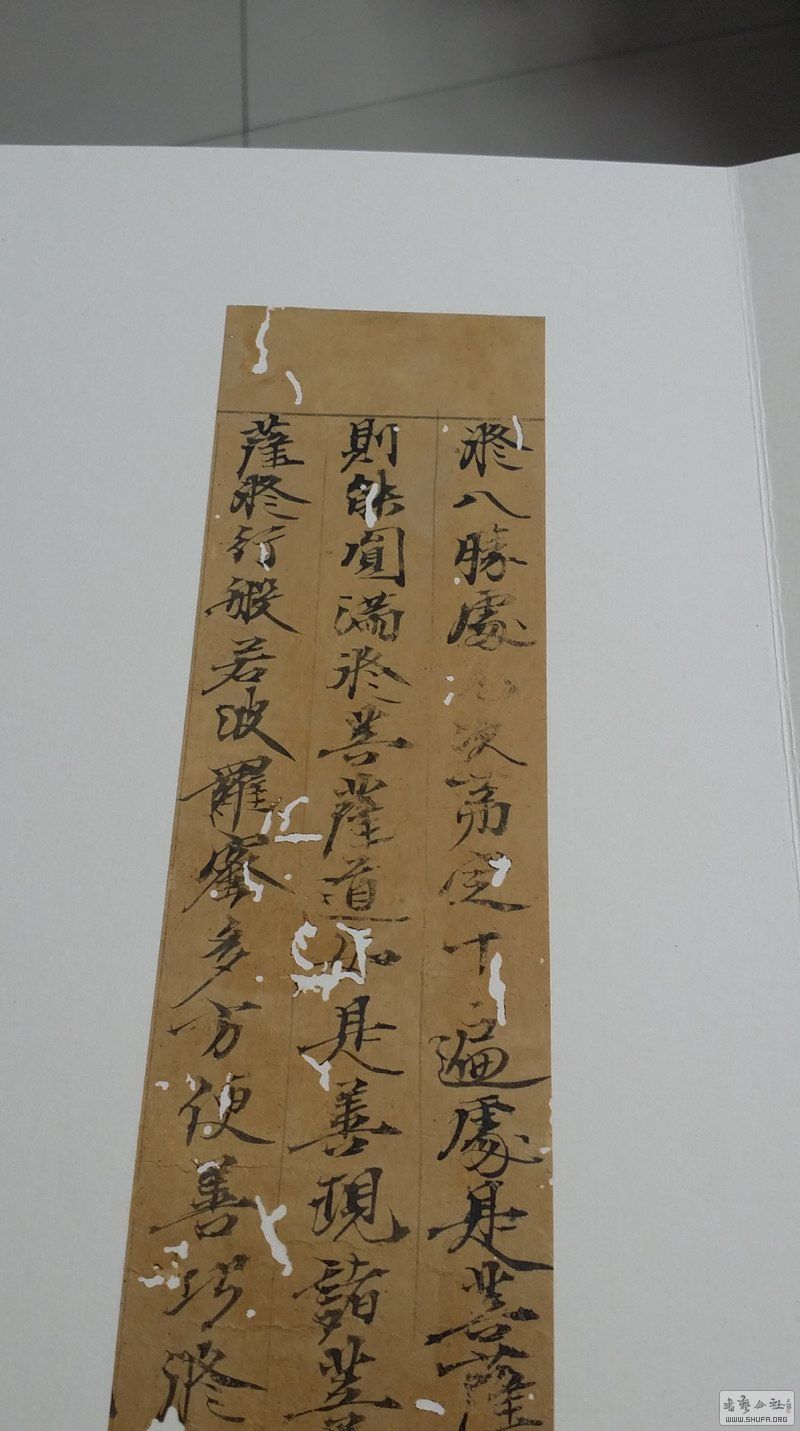 修八勝處九次苐定十遍處是菩薩
則能圓滿修菩薩道如是善現諸菩
薩修行般若波羅蜜多方便善巧修
書藝公社
WWW.SHUFA.ORG